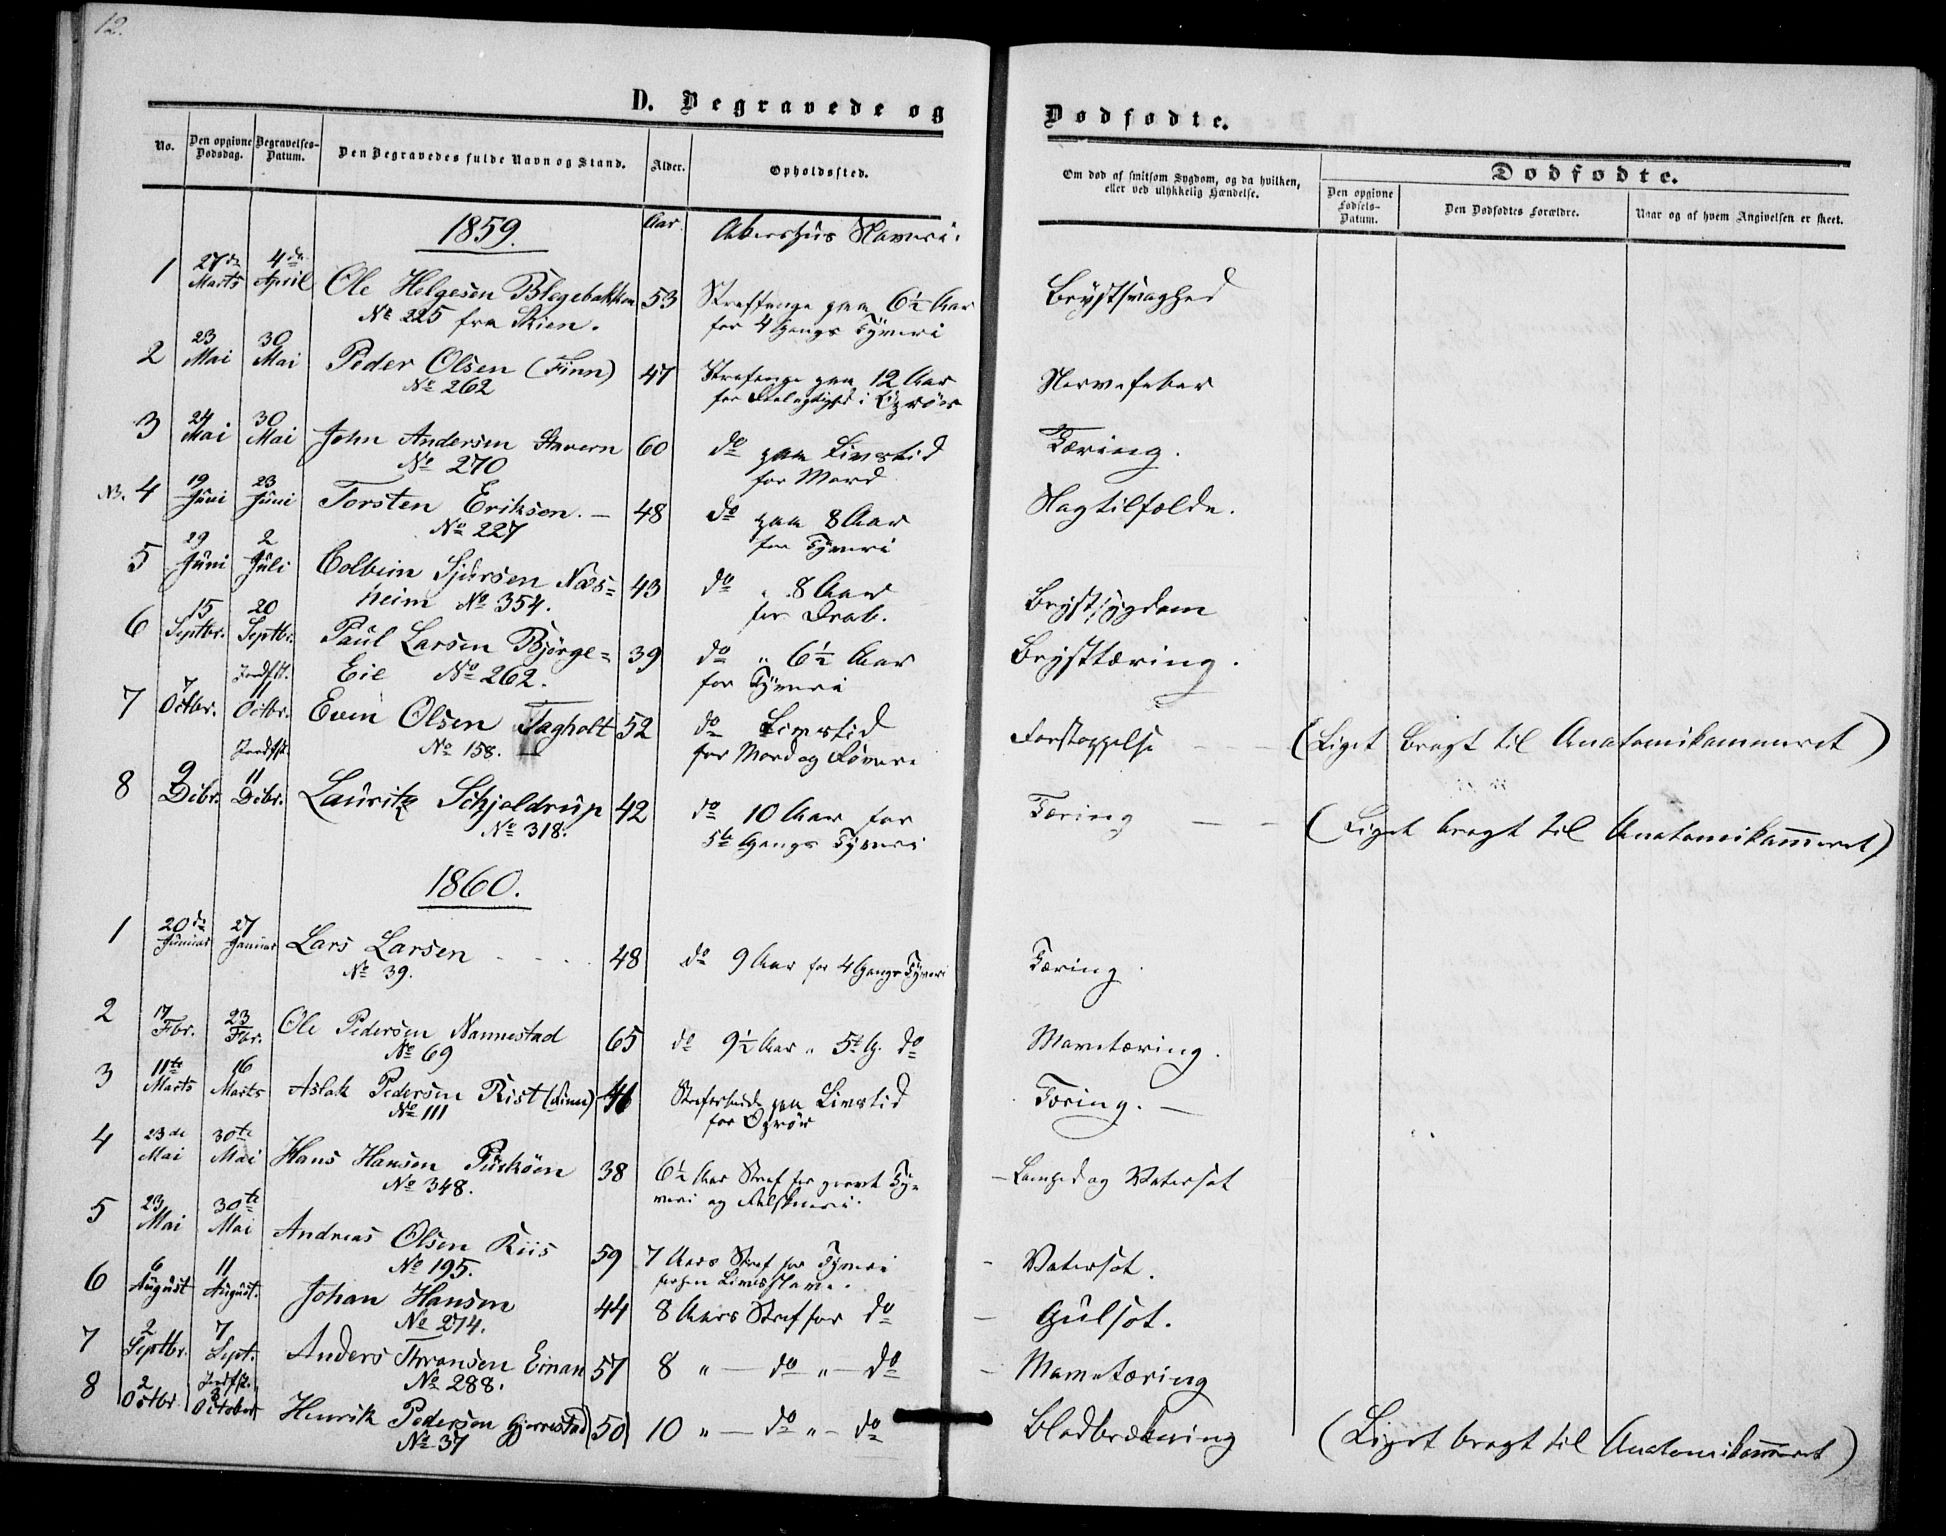 12.
D. Begravede og
Dødfødte.
No.
Den opgivne Dødsdag.
Begravelses-Datum.
Den Begravedes fulde Navn og Stand.
Alder.
Opholdssted.
Om død af smitsom Sygdom, og da hvilken, eller ved ulykkelig Hændelse.
Dødfødte.
Den opgivne Fødsels-Datum.
Den Dødfødtes Forældre.
Naar og af hvem Angivelsen er skeet.
1859. Aar Akershus Slaveri.
1 27de Marts 4de April Ole Helgesen Blegebakken 53 Straffange paa 6½ Aar Brystsvaghed
No 225 fra Skien. for 4 Gangs Tyveri
2 23 Mai 30 Mai Peder Olsen (Finn) 47 Strafange paa 12 Aar Nervefeber
No 262 for Deelagtighed i Oprør
3 24 Mai 30 Mai John Andersen Stavern 60 do paa Livstid Tæring.
No 270 for Mord
NB. 4 19 Juni 23 Juni Torsten Eriksen. — 48 do paa 8 Aar Slagtilfælde.
No 227 for Tyveri
5 29 Juni 2 Juli Colbein Sjursen Næs= 43 do " 8 Aar Brystsygdom
heim No 354. for Drab.
6 15 Septbr. 20 Septbr. Paul Larsen Bjørge= 39 do " 6½ Aar Brysttæring.
Jordfst. Eie No 262. for Tyveri
7 7 Octbr. 11 Octbr. Even Olsen Fagholt 52 do Livstid Forstoppelse — — (Liget bragt til Anatomikammeret)
Jordfst. No 158. for Mord og Røveri
8 9 Dcbr. 11 Dcbr. Lauritz Schjeldrup 42 do 10 Aar for Tæring — — (Liget bragt til Anatomikam̅eret)
No 318. 5te Gangs Tyveri
1860.
1 20de Januar 27 Januar Lars Larsen 48 do 9 Aar for 4 Gangs Tyveri Tæring.
No 39.
2 17 Fbr. 23 Fbr. Ole Pedersen Nannestad 65 do 9½ Aar " 5te G. do Mavetæring.
No 69
3 11te Marts 16 Marts Aslak Pedersen Rist (Finn) 46 Strafarbeide paa Livstid Tæring. —
No 111 for Oprør
4 23de Mai 30te Mai Hans Hansen 38 6½ Aar Straf for grovt Ty= — og Vatersot
No 348. veri og Falskneri.
5 23 Mai 30te Mai Andreas Olsen Riis 59 7 Aars Straf for Tyveri - Vatersot.
No 195. forhen Livsslave.
6 6 August 11 August. Johan Hansen 44 8 Aars Straf for do — Gulsot.
No 274.
7 2 Septbr. 7 Sept. Anders Thronsen Einan 57 8 " — do " — do - Mavetæring
No 288.
8 2 Octbr. Jordfst. 3 October Henrik Pedersen Gjerrestad 50 10 " — do " — do Blodbrækning (Liget bragt til Anatomikam̅eret)
No 37